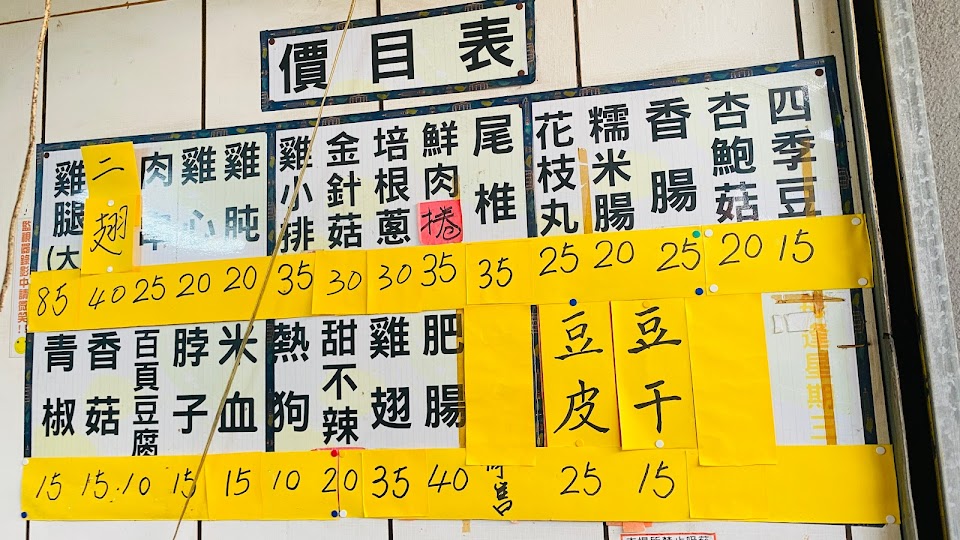 價目表
四季豆
杏鮑菇
香腸
糯米腸
花枝丸
尾椎
鮮肉捲
培根蔥
金針菇
雞小排
雞肫
雞心
肉
二翅
雞腿(大
85 40 25 20 20 35 30 30 35 35 25 20 25 20 15
星期三
豆干
豆皮
肥腸
雞翅
甜不辣
熱狗
米血
脖子
百頁豆腐
香菇
青椒
15 15 10 15 15 10 20 35 40 售 25 15
監視器錄影中請微笑!